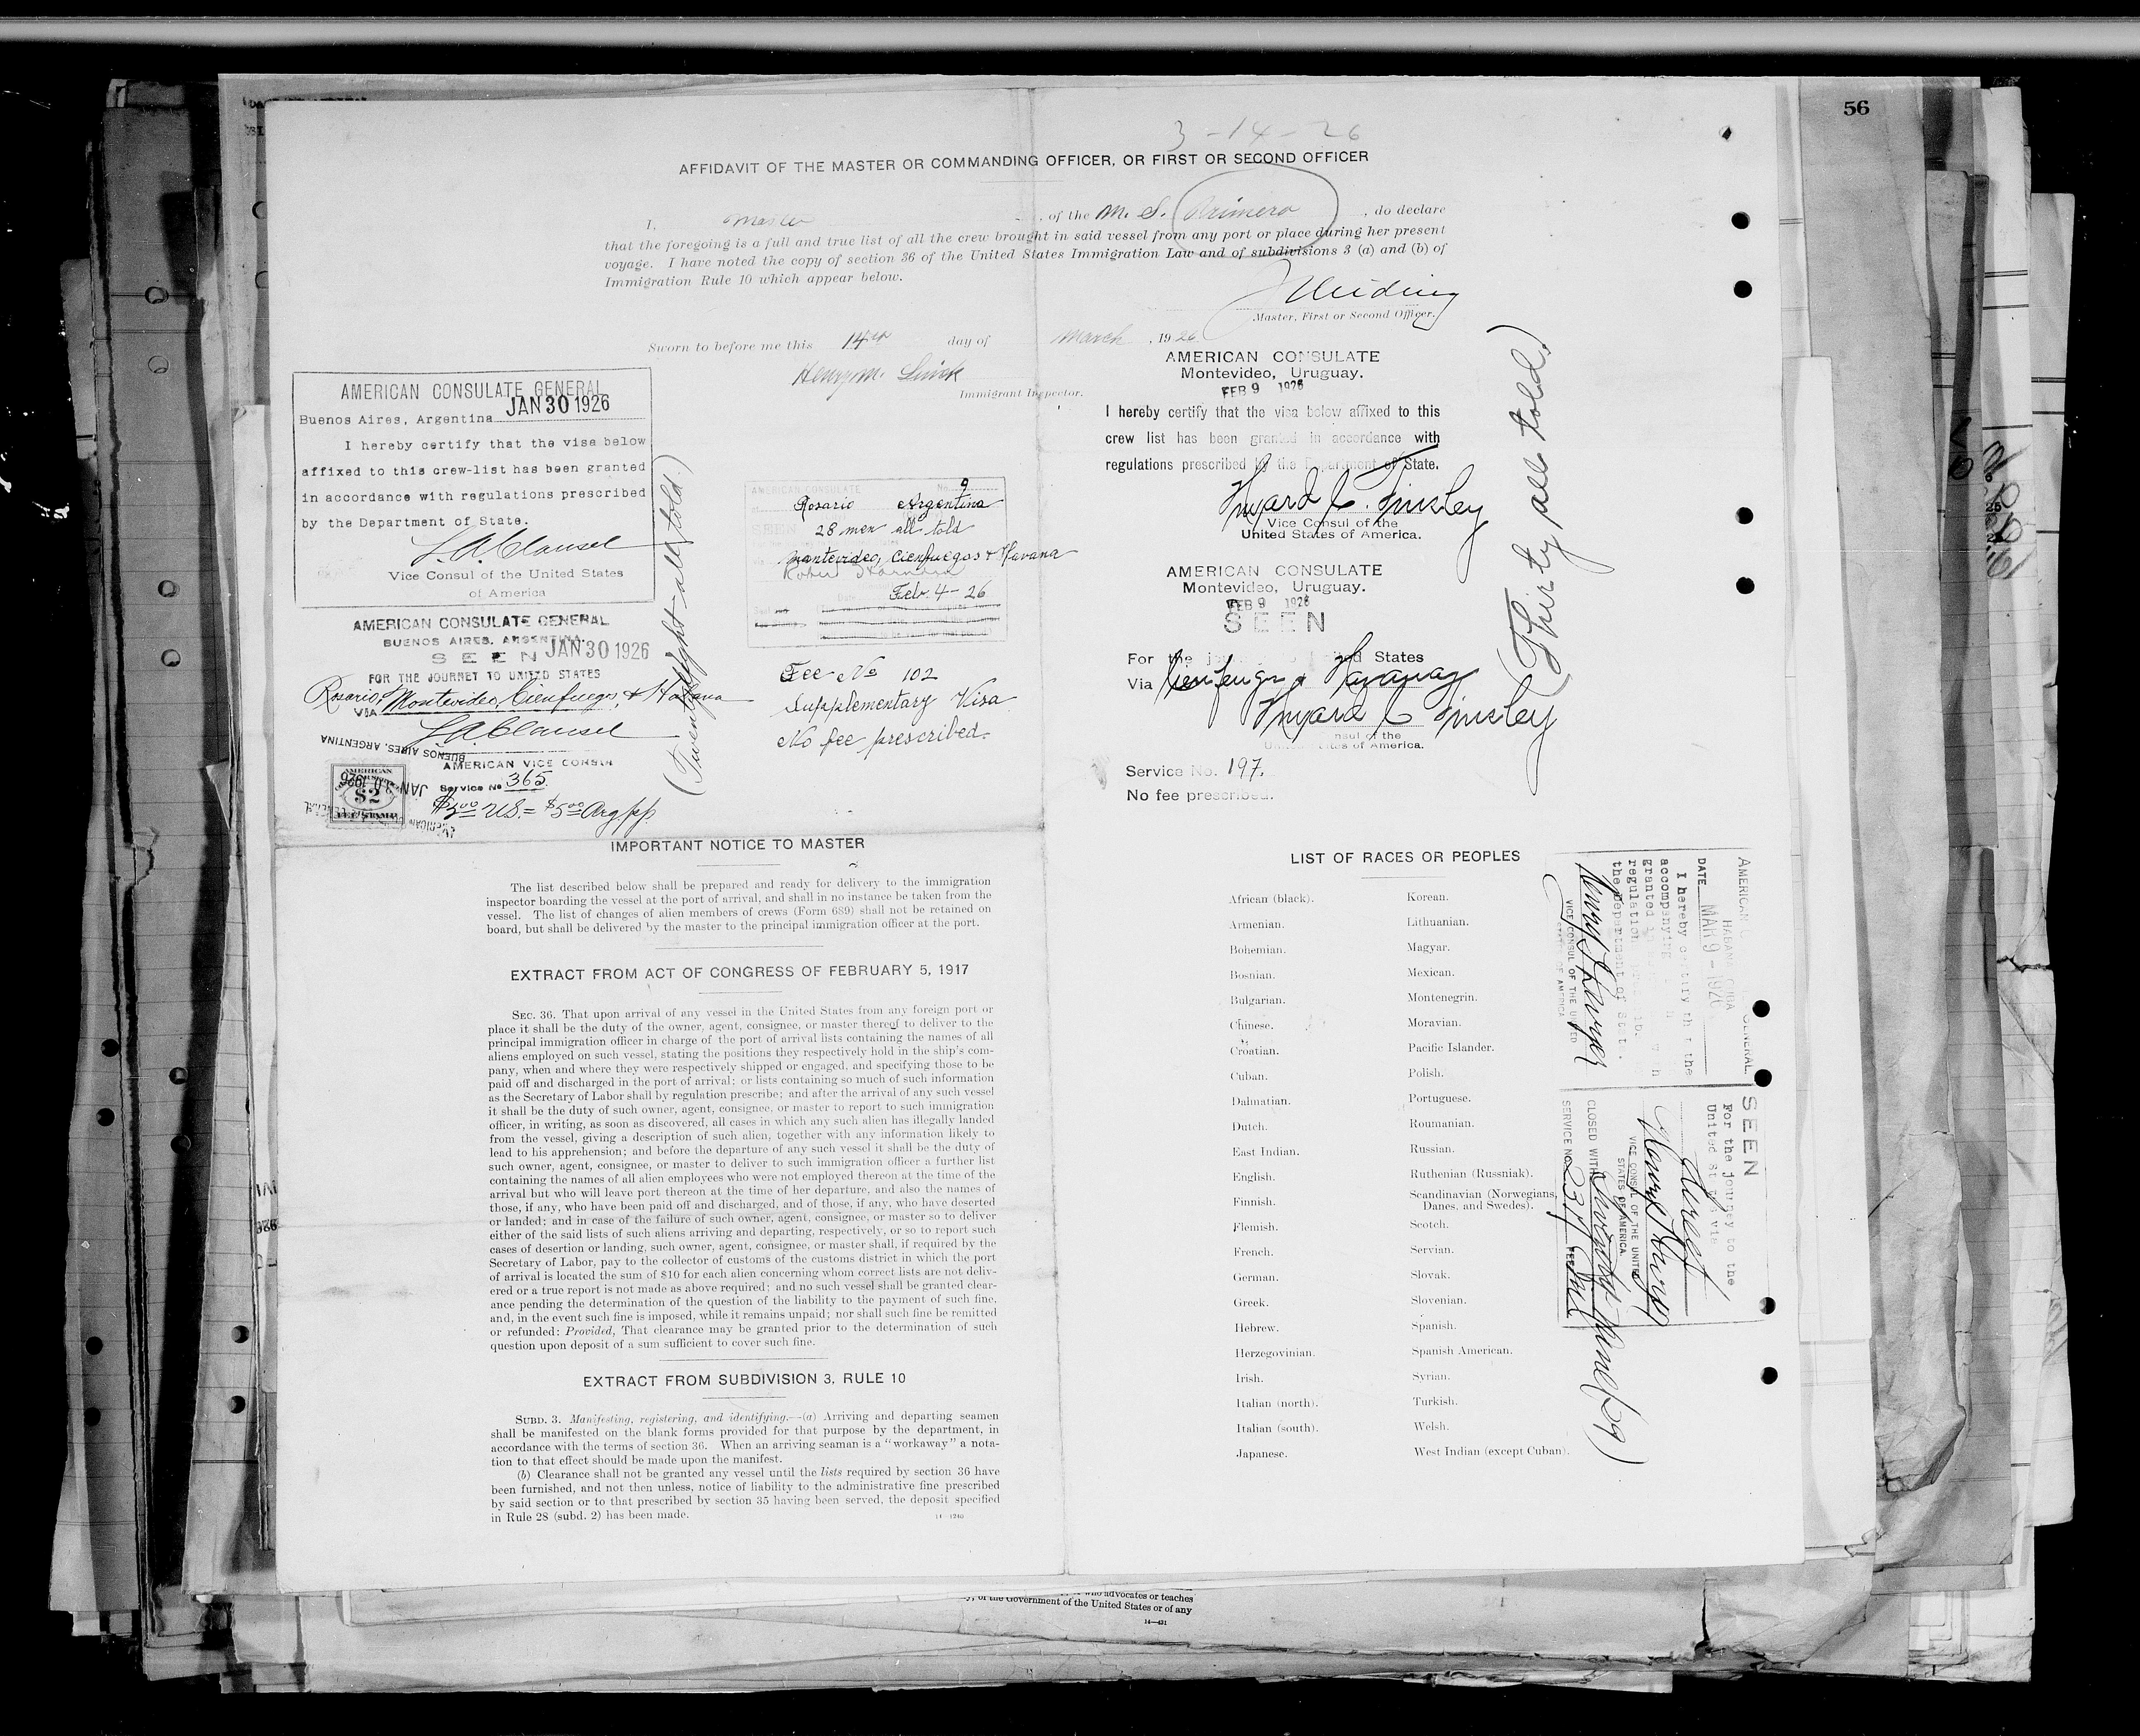 56
3-14-26
AFFIDAVIT OF THE MASTER OR COMMANDING OFFICER, OR FIRST OR SECOND OFFICER
I, Master, of the M. S. Primero, do declare
that the foregoing is a full and true list of all the crew brought in said vessel from any port or place during her present
voyage. I have noted the copy of section 36 of the United States Immigration Law and of subdivisions 3 (a) and (b) of
Immigration Rule 10 which appear below.
Master, First or Second Officer.
Sworn to before me this 14th day of March, 1926
Henry M.
Immigrant Inspector.
AMERICAN CONSULATE GENERAL
Buenos Aires, Argentina JAN 30 1926
I hereby certify that the visa below
affixed to this crew-list has been granted
in accordance with regulations prescribed
by the Department of State.
Vice Consul of the United States
of America
AMERICAN CONSULATE GENERAL
BUENOS AIRES, ARGENTINA
SEEN JAN 30 1926
FOR THE JOURNEY TO UNITED STATES
Rosario, Montevideo, Cienfuegos, & Havana
VIA
AMERICAN VICE CONSUL
BUENOS AIRES, ARGENTINA
JAN 30 1926
AMERICAN
$2
FEE STAMP
Service No 365
(Twenty-eight all told)
AMERICAN CONSULATE No. 9
Rosario Argentina
SEEN
28 men all told
Montevideo, Cienfuegos & Havana
Date Feb. 4-26
Fee No 102
Supplementary Visa
No fee prescribed.
AMERICAN CONSULATE
Montevideo, Uruguay.
FEB 9 1926
I hereby certify that the visa below affixed to this
crew list has been granted in accordance with
regulations prescribed by the Department of State.
Hayard C. Tinsley
Vice Consul of the
United States of America.
AMERICAN CONSULATE
Montevideo, Uruguay.
FEB 9 1926
SEEN
For the journey to United States
Via Cienfuegos & Havana
Hayard C Tinsley
United States of America.
Service No. 197.
No fee prescribed.
(Thirty all told)
IMPORTANT NOTICE TO MASTER
The list described below shall be prepared and ready for delivery to the immigration
inspector boarding the vessel at the port of arrival, and shall in no instance be taken from the
vessel. The list of changes of alien members of crews (Form 689) shall not be retained on
board, but shall be delivered by the master to the principal immigration officer at the port.
EXTRACT FROM ACT OF CONGRESS OF FEBRUARY 5, 1917
SEC. 36. That upon arrival of any vessel in the United States from any foreign port or
place it shall be the duty of the owner, agent, consignee, or master thereof to deliver to the
principal immigration officer in charge of the port of arrival lists containing the names of all
aliens employed on such vessel, stating the positions they respectively hold in the ship's com-
pany, when and where they were respectively shipped or engaged, and specifying those to be
paid off and discharged in the port of arrival; or lists containing so much of such information
as the Secretary of Labor shall by regulation prescribe; and after the arrival of any such vessel
it shall be the duty of such owner, agent, consignee, or master to report to such immigration
officer, in writing, as soon as discovered, all cases in which any such alien has illegally landed
from the vessel, giving a description of such alien, together with any information likely to
lead to his apprehension; and before the departure of any such vessel it shall be the duty of
such owner, agent, consignee, or master to deliver to such immigration officer a further list
containing the names of all alien employees who were not employed thereon at the time of the
arrival but who will leave port thereon at the time of her departure, and also the names of
those, if any, who have been paid off and discharged, and of those, if any, who have deserted
or landed; and in case of the failure of such owner, agent, consignee, or master so to deliver
either of the said lists of such aliens arriving and departing, respectively, or so to report such
cases of desertion or landing, such owner, agent, consignee, or master shall, if required by the
Secretary of Labor, pay to the collector of customs of the customs district in which the port
of arrival is located the sum of $10 for each alien concerning whom correct lists are not deliv-
ered or a true report is not made as above required; and no such vessel shall be granted clear-
ance pending the determination of the question of the liability to the payment of such fine,
and, in the event such fine is imposed, while it remains unpaid; nor shall such fine be remitted
or refunded: Provided, That clearance may be granted prior to the determination of such
question upon deposit of a sum sufficient to cover such fine.
EXTRACT FROM SUBDIVISION 3, RULE 10
SUBD. 3. Manifesting, registering, and identifying.—(a) Arriving and departing seamen
shall be manifested on the blank forms provided for that purpose by the department, in
accordance with the terms of section 36. When an arriving seaman is a "workaway" a nota-
tion to that effect should be made upon the manifest.
(b) Clearance shall not be granted any vessel until the lists required by section 36 have
been furnished, and not then unless, notice of liability to the administrative fine prescribed
by said section or to that prescribed by section 35 having been served, the deposit specified
in Rule 28 (subd. 2) has been made.
14—1240
LIST OF RACES OR PEOPLES
African (black).
Armenian.
Bohemian.
Bosnian.
Bulgarian.
Chinese.
Croatian.
Cuban.
Dalmatian.
Dutch.
East Indian.
English.
Finnish.
Flemish.
French.
German.
Greek.
Hebrew.
Herzegovinian.
Irish.
Italian (north).
Italian (south).
Japanese.
Korean.
Lithuanian.
Magyar.
Mexican.
Montenegrin.
Moravian.
Pacific Islander.
Polish.
Portuguese.
Roumanian.
Russian.
Ruthenian (Russniak).
Scandinavian (Norwegians,
Danes, and Swedes).
Scotch.
Servian.
Slovak.
Slovenian.
Spanish.
Spanish American.
Syrian.
Turkish.
Welsh.
West Indian (except Cuban).
AMERICAN GENERAL.
HABANA CUBA
DATE MAR 9-1926
I hereby certify that the
accompanying
granted
regulation
the Department of State.
VICE CONSUL OF THE UNITED
STATES OF AMERICA
SEEN
For the journey to the
United States via
Direct
VICE CONSUL OF THE UNITED
STATES OF AMERICA
CLOSED WITH Twenty Nine (29)
SERVICE NO. 2311 FEE
who advocates or teaches
y, of the Government of the United States or of any
14—431